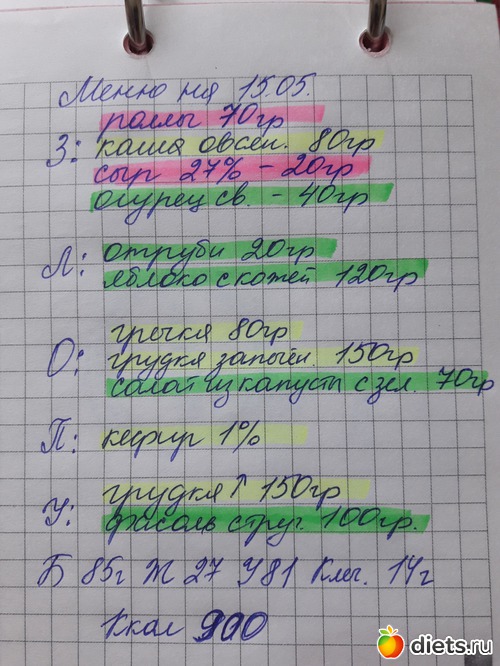 Меню на 15.05.
роллы 70гр
З: каша овсян. 80гр
сыр 27% - 20гр
огурец св. - 40гр
Л: отруби 20гр
яблоко с кожей 120гр
гречка 80гр
О: грудка запечён. 150гр
салат из капусты с зел. 70гр
П: кефир 1%
грудка↑ 150гр
У: фасоль струч. 100гр.
Б 85г Ж 27 У81 Клет. 14г
Ккал 990
diets.ru